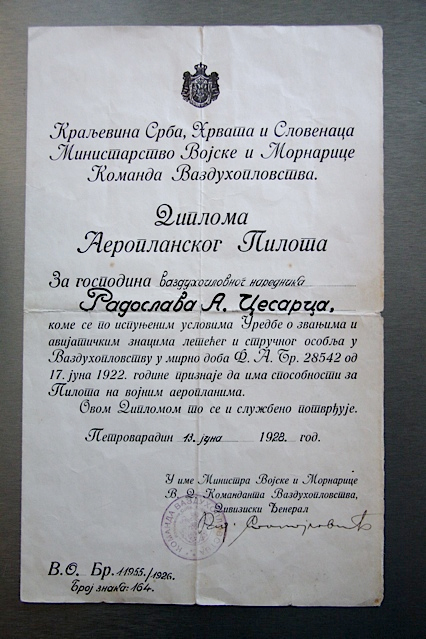 Краљевина Срба, Хрвата и Словенаца
Министарство Војске и Морнарице
Команда Ваздухопловства.
Диплома
Аеропланског Пилота
За господина ваздухопловног наредника
Радослава А. Цесарца,
коме се по испуњеним условима Уредбе о звањима и
авијатичким знацима летећег и стручног особља у
Ваздухопловству у мирно доба Ф. А. Бр. 28542 од
17. јуна 1922. године признаје да има способности за
Пилота на војним аеропланима.
Овом Дипломом то се и службено потврђује.
Петроварадин 13. јуна 1928. год.
У име Министра Војске и Морнарице
В. Д. Команданта Ваздухопловства,
Дивизиски Ђенерал
КОМАНДА
В. О. Бр. 11955./1926.
Број знака: 164.